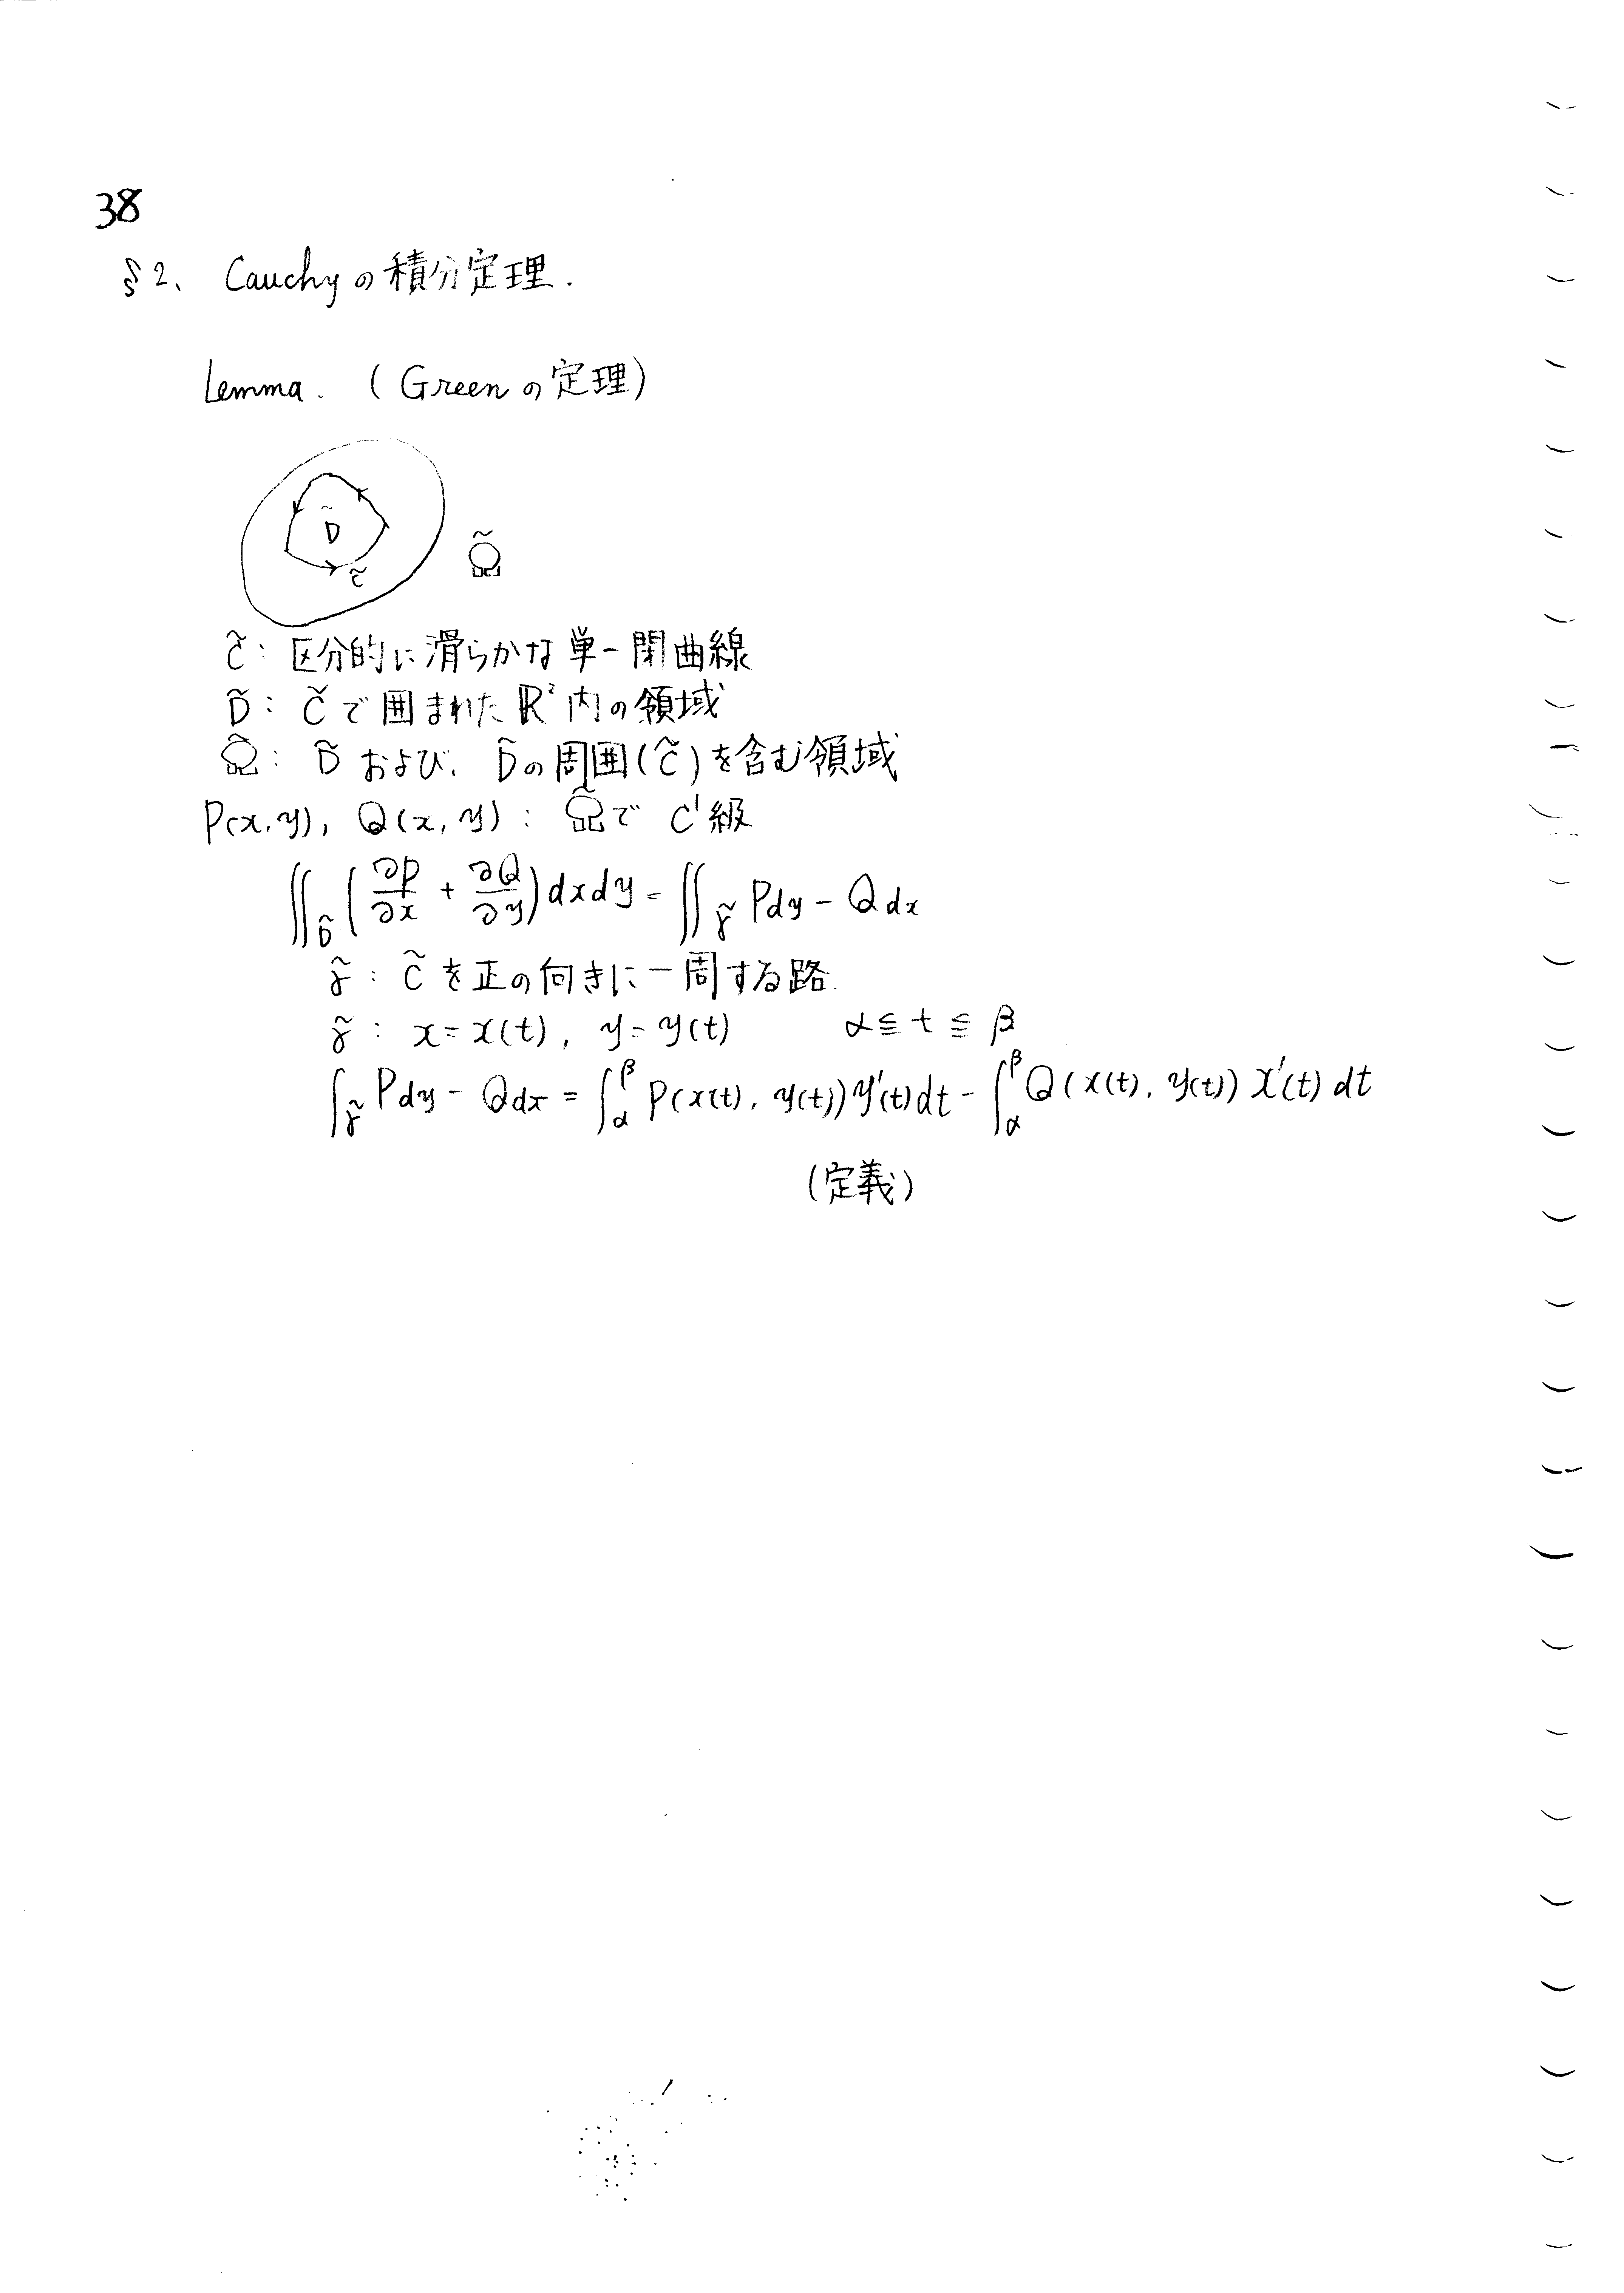 38
§2、 Cauchyの積分定理.
Lemma. (Greenの定理)
D̃
C̃
Ω̃
C̃: 区分的に滑らかな単一閉曲線
D̃: C̃で囲まれたℝ²内の領域
Ω̃: D̃および、D̃の周囲(C̃)を含む領域
P(x,y), Q(x,y): Ω̃で C¹級
∬_D̃ (∂P/∂x + ∂Q/∂y) dxdy = ∬_γ̃ Pdy − Qdx
γ̃: C̃を正の向きに一周する路.
γ̃: x=x(t), y=y(t) α≦t≦β
∫_γ̃ Pdy − Qdx = ∫_α^β P(x(t), y(t))y'(t)dt − ∫_α^β Q(x(t), y(t))x'(t)dt
(定義)